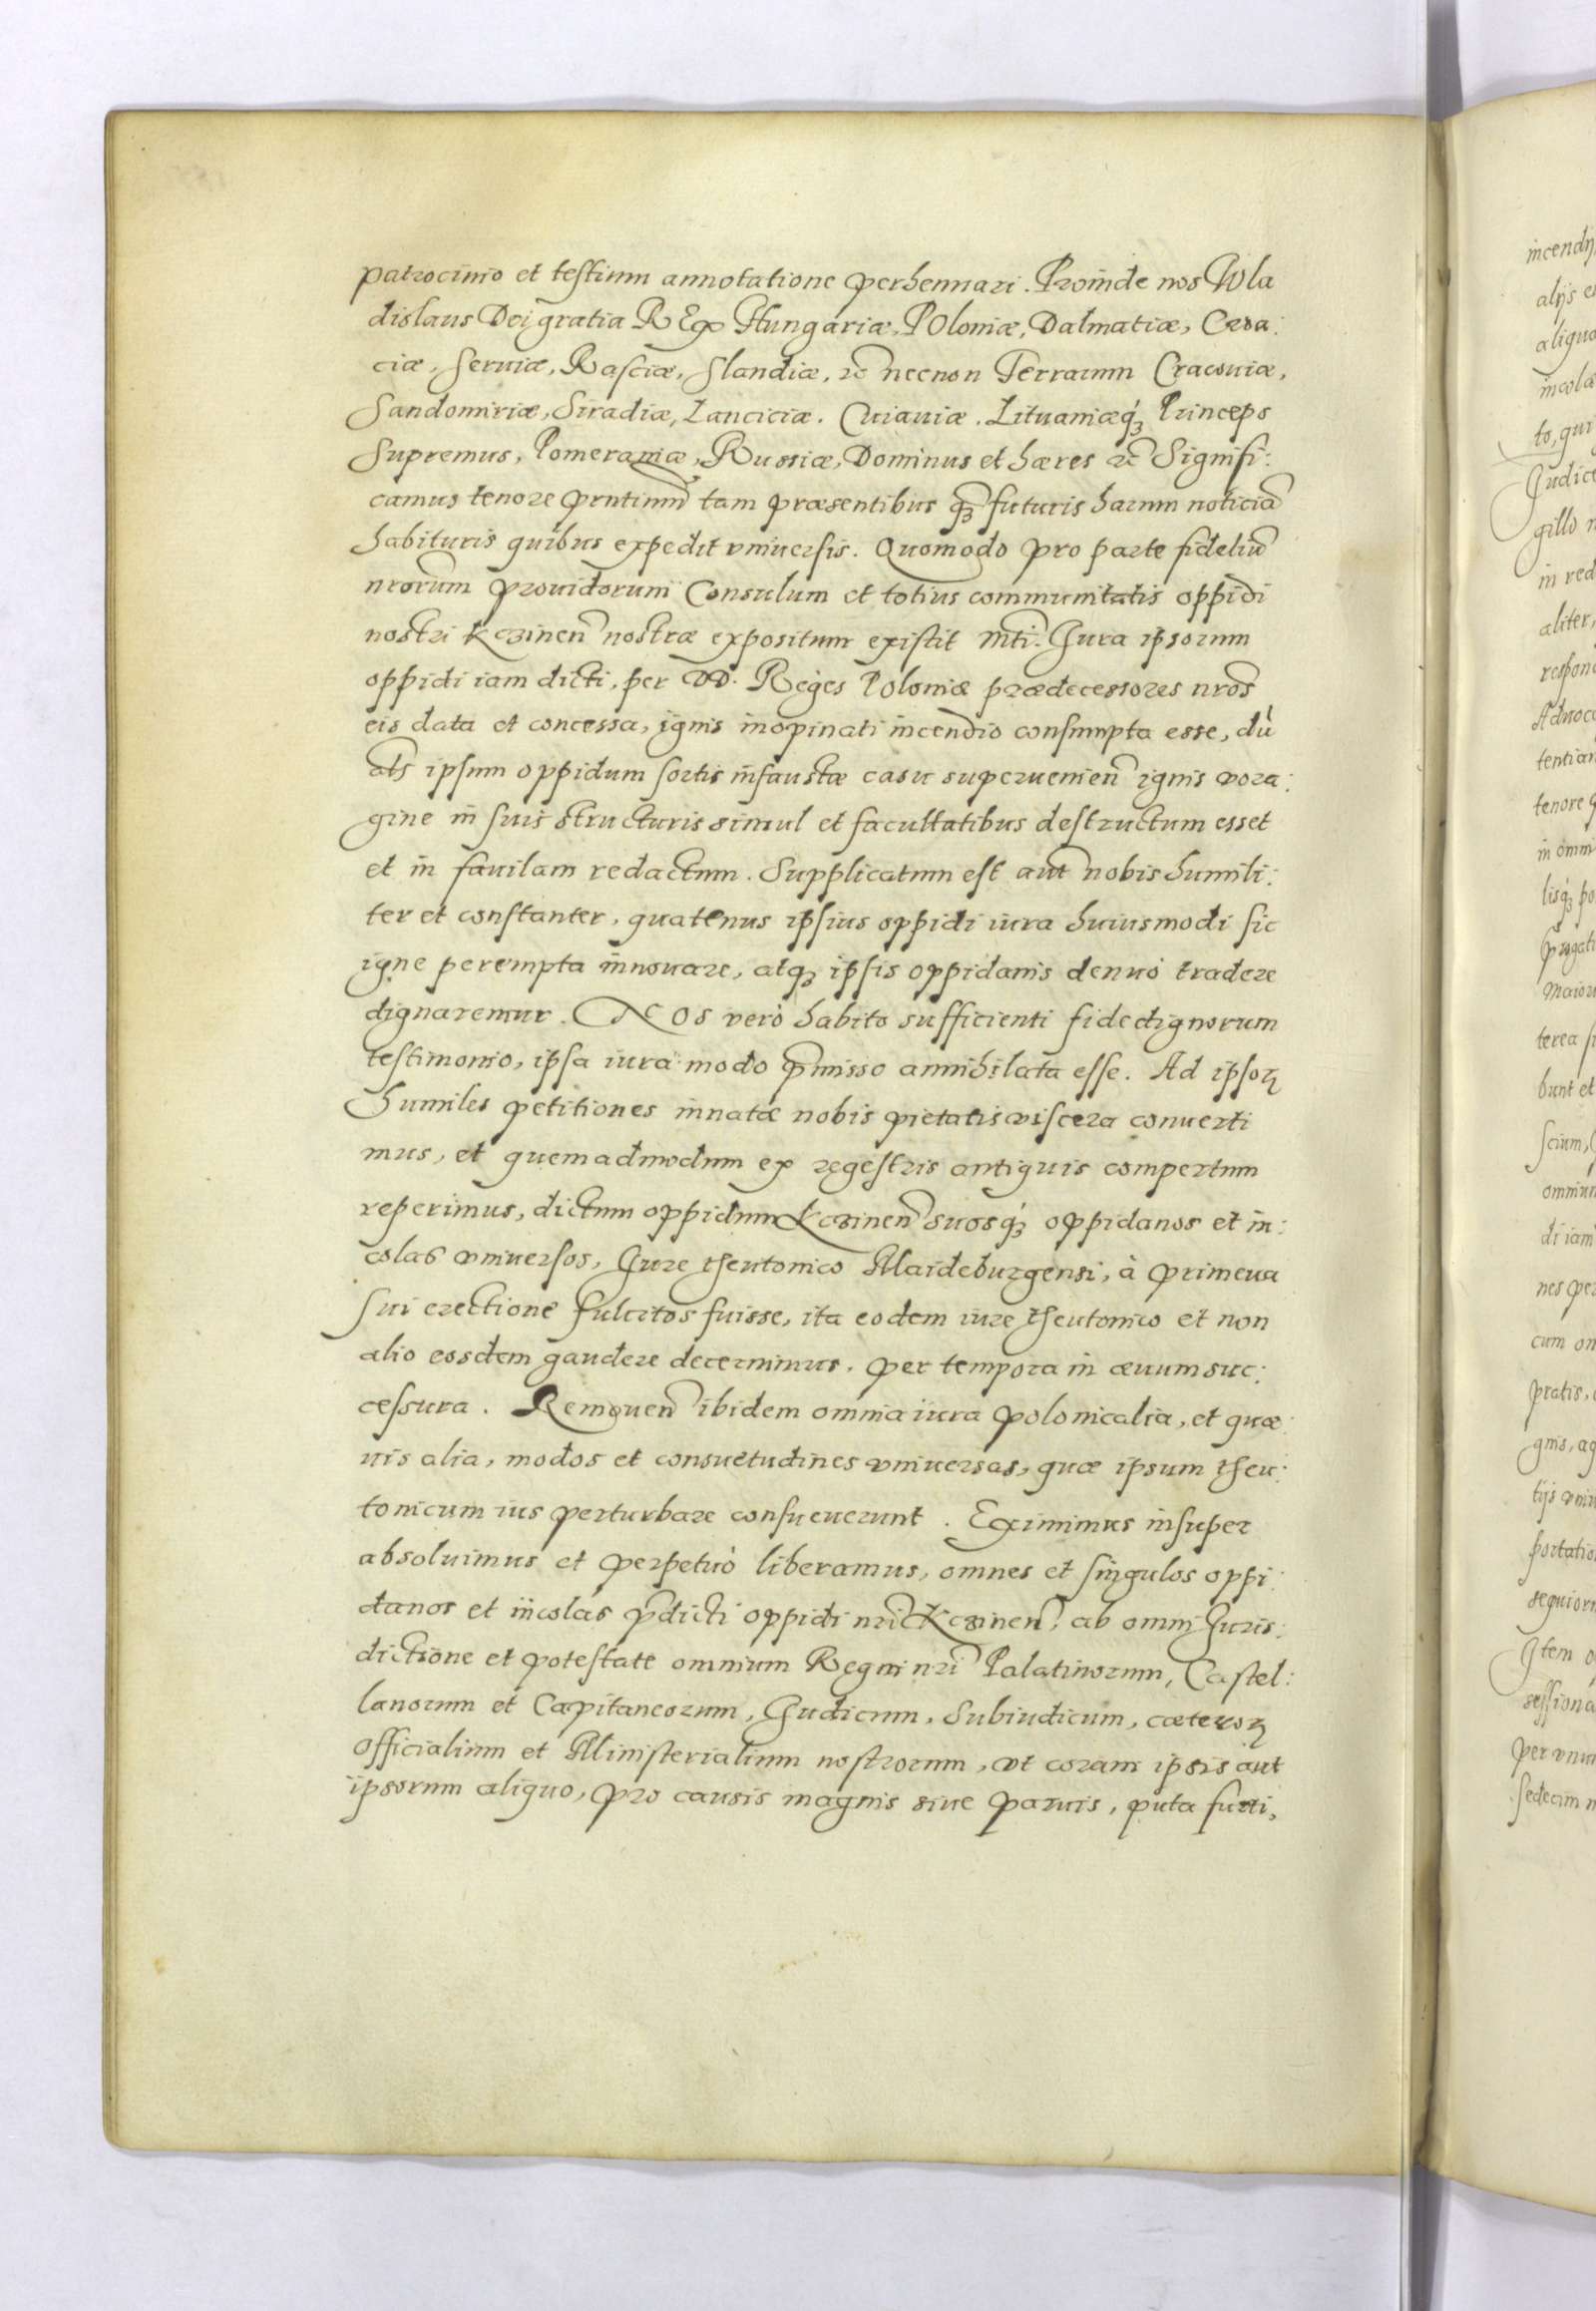 patrocinio et testium annotatione perhennari. Proinde nos Wla
dislaus Dei gratia REx Hungariæ, POloniæ, Dalmatiæ, Croa:
ciæ, Seruiæ, Rasciæ, Slandiæ, ꝛc̃ necnon Terrarum Cracouiæ,
Sandomiriæ, Siradiæ, Lanciciæ. Cuiauiæ. Lituaniæq́ꝫ Princeps
Supremus, Pomeraniæ, Russiæ, Dominus et hæres ꝛc̃ Signifi:
camus tenore pn̄tium tam præsentibus q̃ꝫ futuris harum noticiā
habituris quibus expedit vniuersis. Quomodo pro parte fideliū
nr̄orum prouidorum Consulum et totius communitatis oppidi
nostri Kczinen̄ nostræ expositum existit Mti. Jura ipsorum
oppidi iam dicti, per DD. Reges Poloniæ prædecessores nr̄os
eis data et concessa, ignis inopinati incendio consumpta esse, dū
al̄s ipsum oppidum sortis infaustæ casu superuenien̄ ignis vora:
gine in suis structuris simul et facultatibus destructum esset
et in fauilam redactum. Supplicatum est aut̄ nobis humili:
ter et constanter, quatenus ipsius oppidi iura huiusmodi sic
igne perempta innouare, atqꝫ ipsis oppidanis denuò tradere
dignaremur. NOs verò habito sufficienti fidedignorum
testimonio, ipsa iura modo p̄misso annihilata esse. Ad ipsoꝝ
humiles petitiones innatæ nobis pietatis viscera conuerti
mus, et quemadmodum ex regestris antiquis compertum
reperimus, dictum oppidum Kczinen̄ suosq́ꝫ oppidanos et in:
colas vniuersos, Jure theutonico Maideburgensi, à primeua
sui erectione fulcitos fuisse, ita eodem iure theutonico et non
alio eosdem gaudere decernimus, per tempora in æuum suc:
cessura. Remouen̄ ibidem omnia iura polonicalia, et quæ:
uis alia, modos et consuetudines vniuersas, quæ ipsum theu:
tonicum ius perturbare consueuerunt. Eximimus insuper
absoluimus et perpetuò liberamus, omnes et singulos oppi:
danos et incolas p̄dicti oppidi nr̄i Kczinen̄, ab omni Juris:
dictione et potestate omnium Regni nr̄i Palatinorum, Castel:
lanorum et Capitaneorum, Judicum, Subiudicum, cæteroꝝ
Officialium et Ministerialium nostrorum, vt coram ipsis aut
ipsorum aliquo, pro causis magnis siue paruis, puta furti,